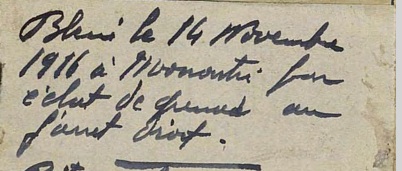 Blessé le 14 Novembre
1916 à Monastir par
éclat de grenade au
jarret droit.